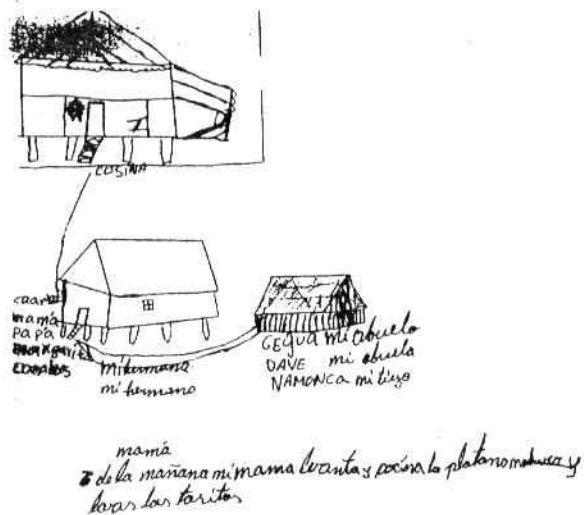 COSINA
cuarto
mamá
papá
mi hermana
mi hermano
GEGUA mi abuelo
DAVE mi abuela
NAMONCA mi tiyo
mamá
de la mañana mi mama levanta y cocina lo platano maduro y
lavas las tasitas